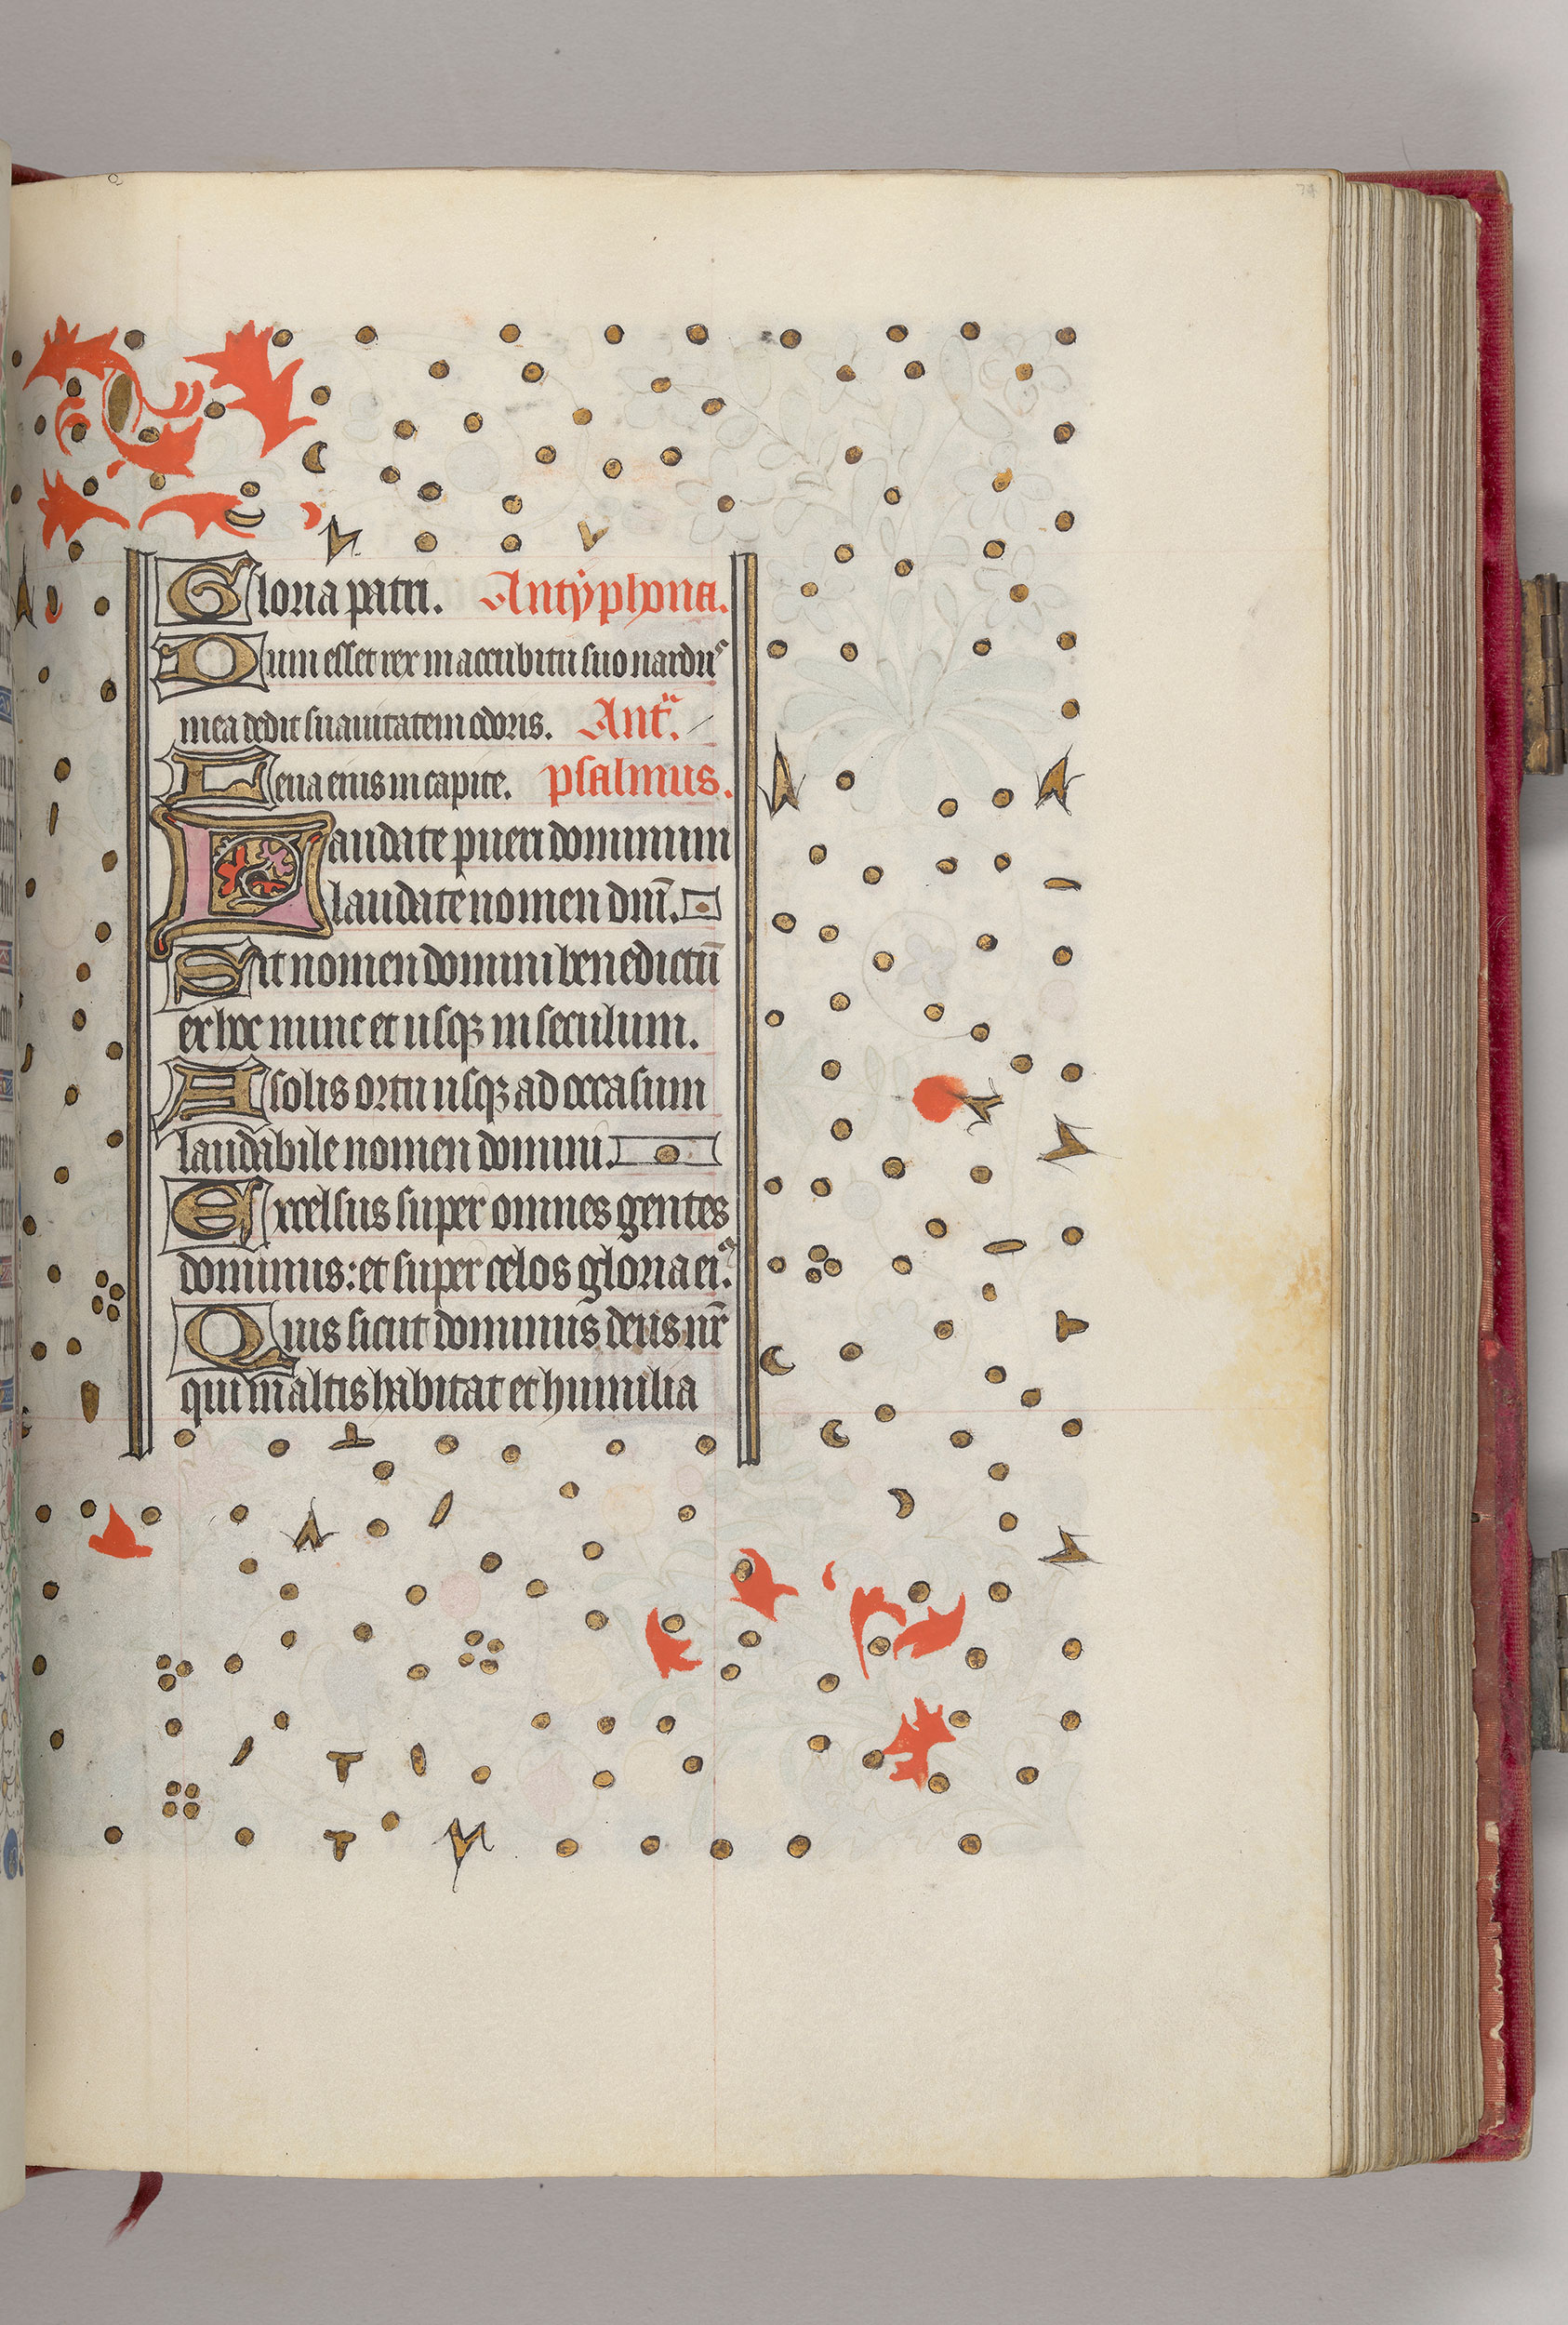 Gloria patri. Antÿphona.
Dum esset rex in accubitu suo nardu᷒
mea dedit suauitatem odoris. Antᷓ.
Leua eius in capite. psalmus.
Laudate pueri dominum
laudate nomen dnī.
Sit nomen domini benedictū
ex hoc nunc et usqꝫ in seculum.
A solis ortu usqꝫ ad occasum
laudabile nomen domini.
Excelsus super omnes gentes
dominus: et super celos gloria eiꝰ.
Quis sicut dominus deus nr̄
qui in altis habitat et humilia